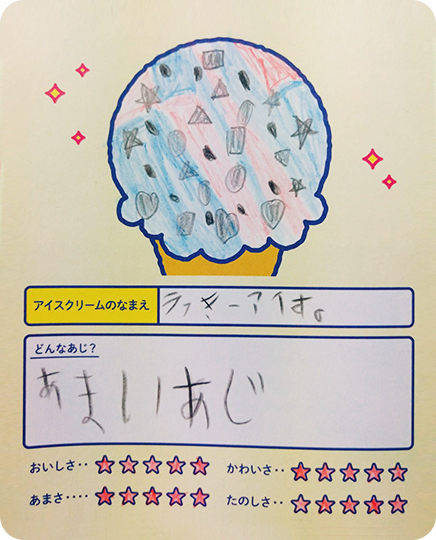 アイスクリームのなまえ
ラッきーアイす。
どんなあじ?
あまいあじ
おいしさ‥ ☆☆☆☆☆
かわいさ‥ ☆☆☆☆☆
あまさ‥‥ ☆☆☆☆☆
たのしさ‥ ☆☆☆☆☆